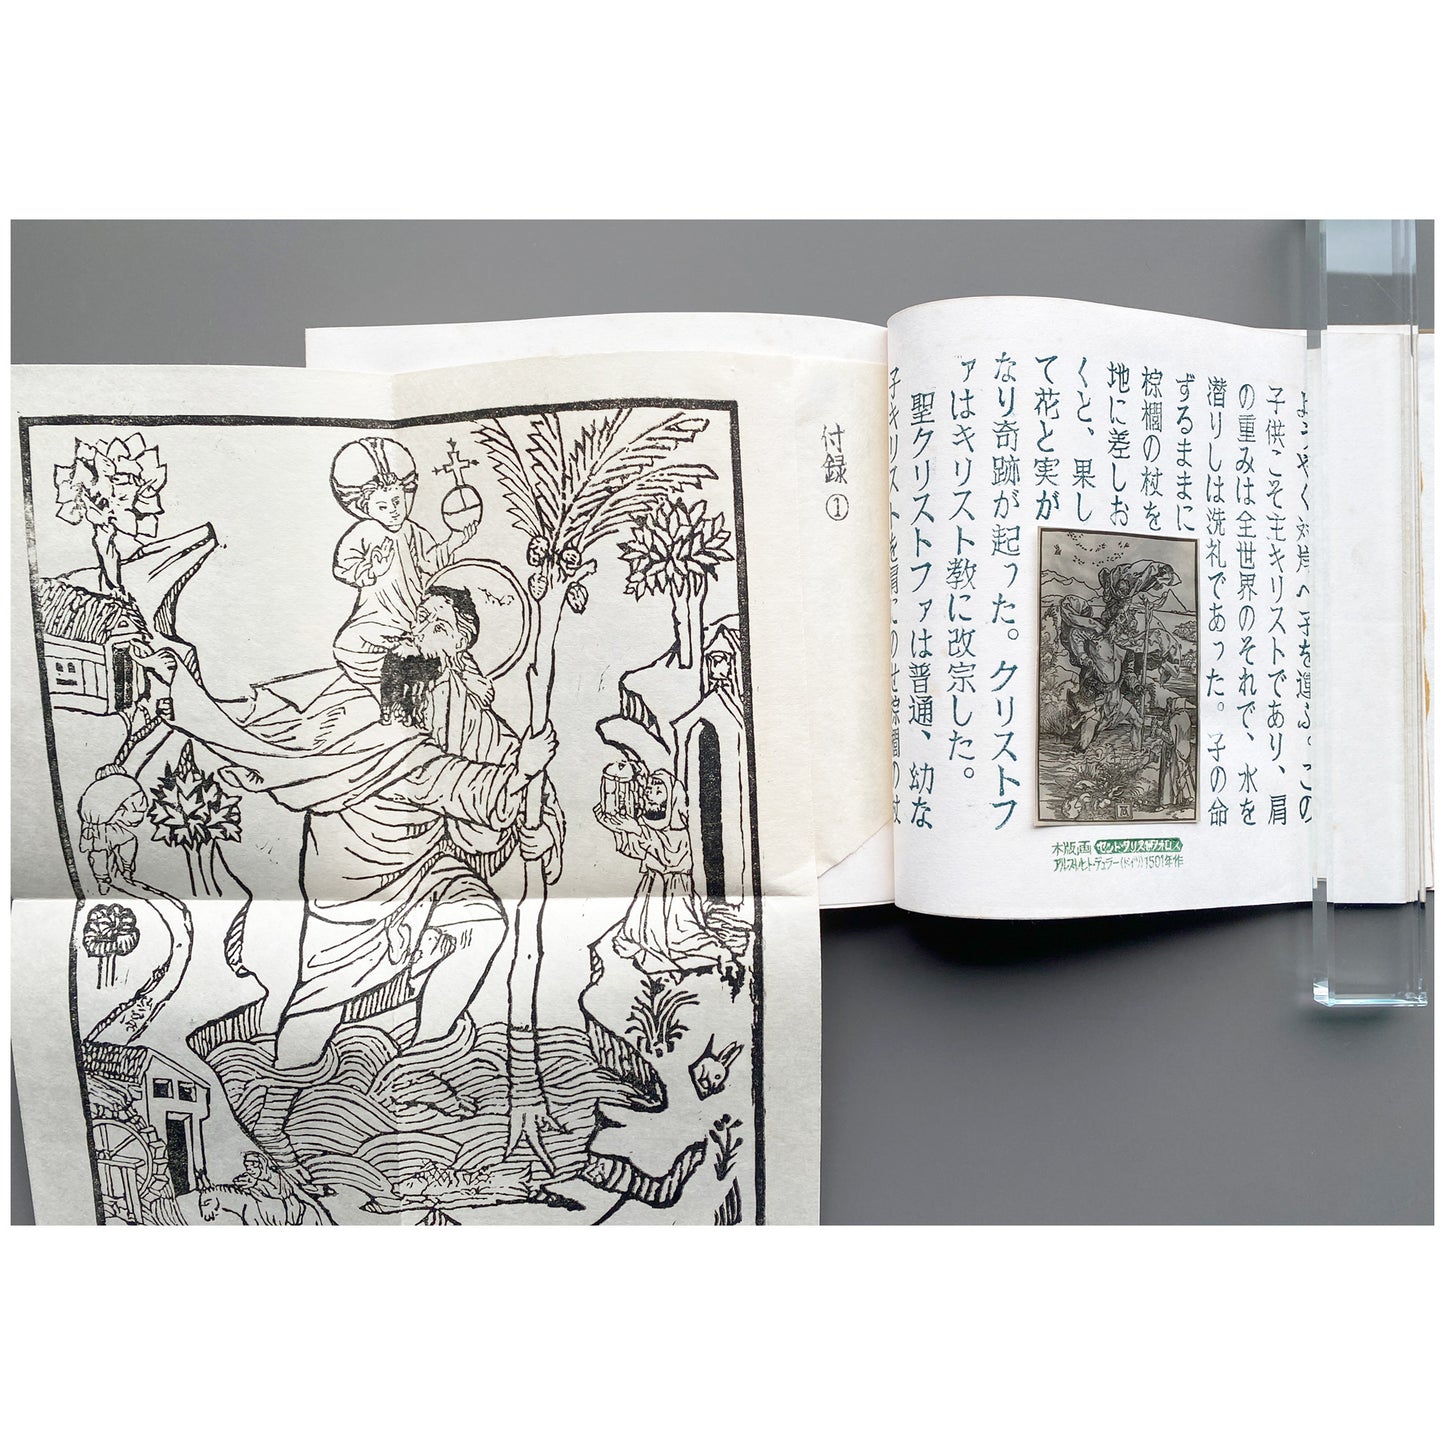 ようやく対岸へ子を運ぶ。この
子供こそ主キリストであり、肩
の重みは全世界のそれで、水を
潜りしは洗礼であった。子の命
ずるままに
棕櫚の杖を
地に差しお
くと、果し
て花と実が
なり奇跡が起った。クリストフ
ァはキリスト教に改宗した。
聖クリストファは普通、幼な
子キリストを肩にのせ棕櫚の杖
木版画 セント・クリストフォロス
アルブレヒト・デュラー(ドイツ)1501年作
付録①